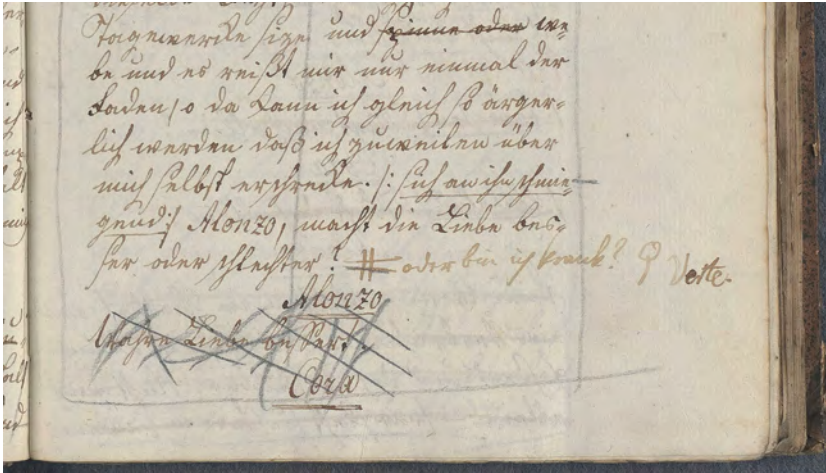 Tagewercke size und spinne oder we⸗
be und es reißt mir nur einmal der
Faden, o da kann ich gleich so ärger⸗
lich werden daß ich zuweilen über
mich selbst erschrecke. /: sich an ihn schmie⸗
gend :/ Alonzo, macht die Liebe bes⸗
ser oder schlechter? # oder bin ich kranck? Verte.
Alonzo
Wahre Liebe bessert.
Cora